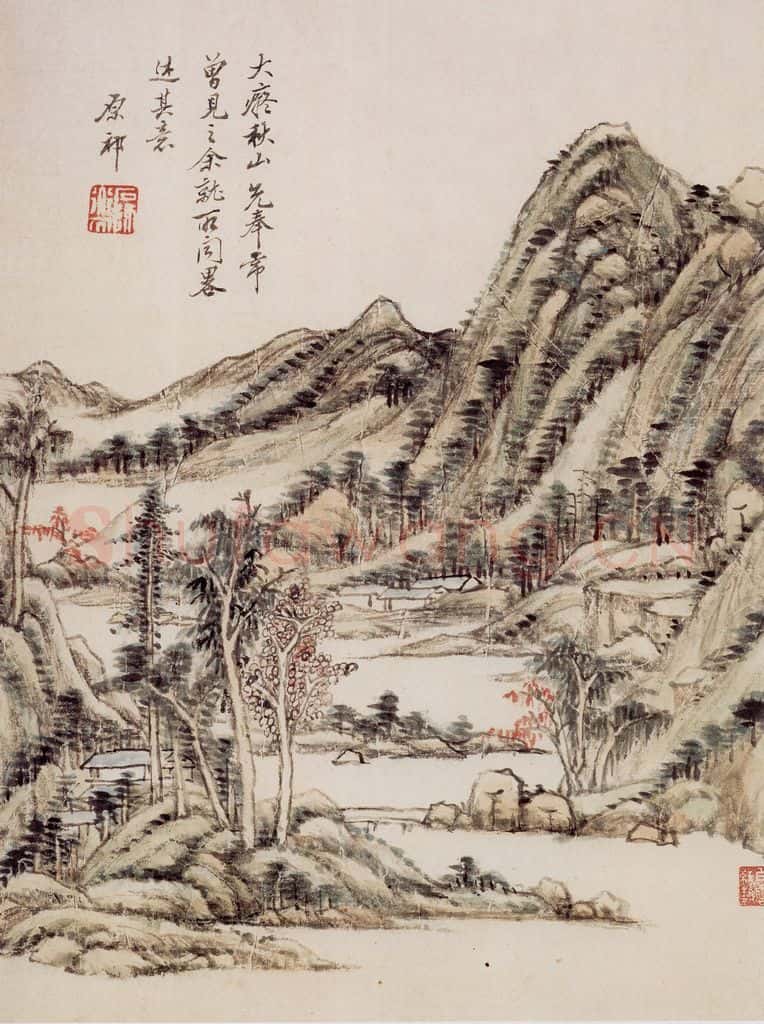 大癡秋山先奉常
曾見之余就所聞畧
述其意
原祁
shufawang.CN